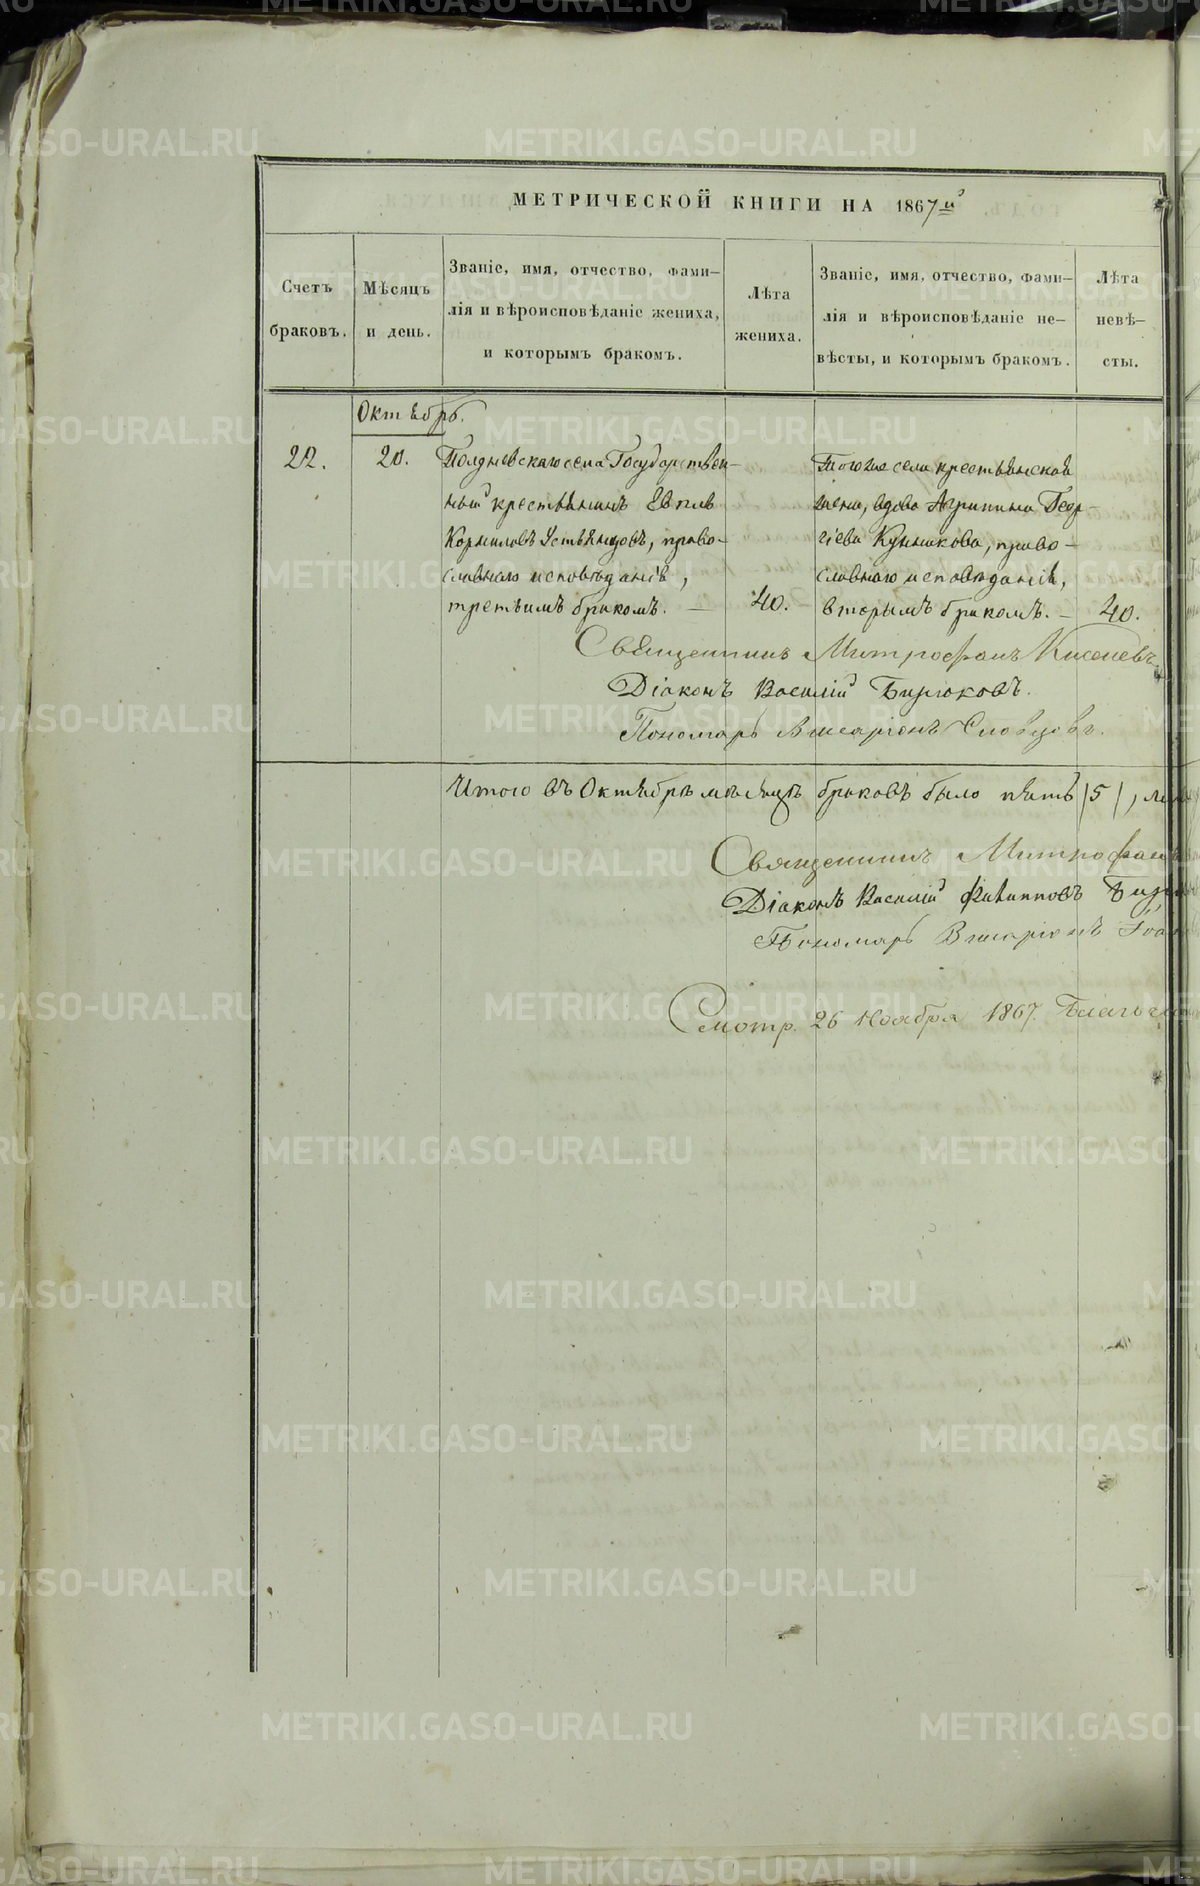 МЕТРИЧЕСКОЙ КНИГИ НА 1867й
Счетъ браковъ.
Мѣсяцъ и день.
Званіе, имя, отчество, фами-
лія и вѣроисповѣданіе жениха,
и которымъ бракомъ.
Лѣта жениха.
Званіе, имя, отчество, фами-
лія и вѣроисповѣданіе не-
вѣсты, и которымъ бракомъ.
Лѣта невѣ-
сты.
Октябрь.
22.
20.
Полдневскаго села Государствен-
ный крестьянинъ Евплъ
Корниловъ Устьянцовъ, право-
славнаго исповѣданія,
третьимъ бракомъ. —
40.
Того же села крестьянская
жена, вдова Агрипина Геор-
гіева Кунникова, право-
славнаго исповѣданія,
вторымъ бракомъ. —
40.
Священникъ Митрофанъ Киселевъ
Діаконъ Василій Бирюковъ.
Пономарь Висаріонъ Словцовъ.
Итого въ Октябрѣ мѣсяцѣ браковъ было пять /5/,
Священникъ Митрофанъ
Діаконъ Василій Филипповъ
Пономарь Висаріонъ
Смотр. 26 Ноября 1867.
METRIKI.GASO-URAL.RU